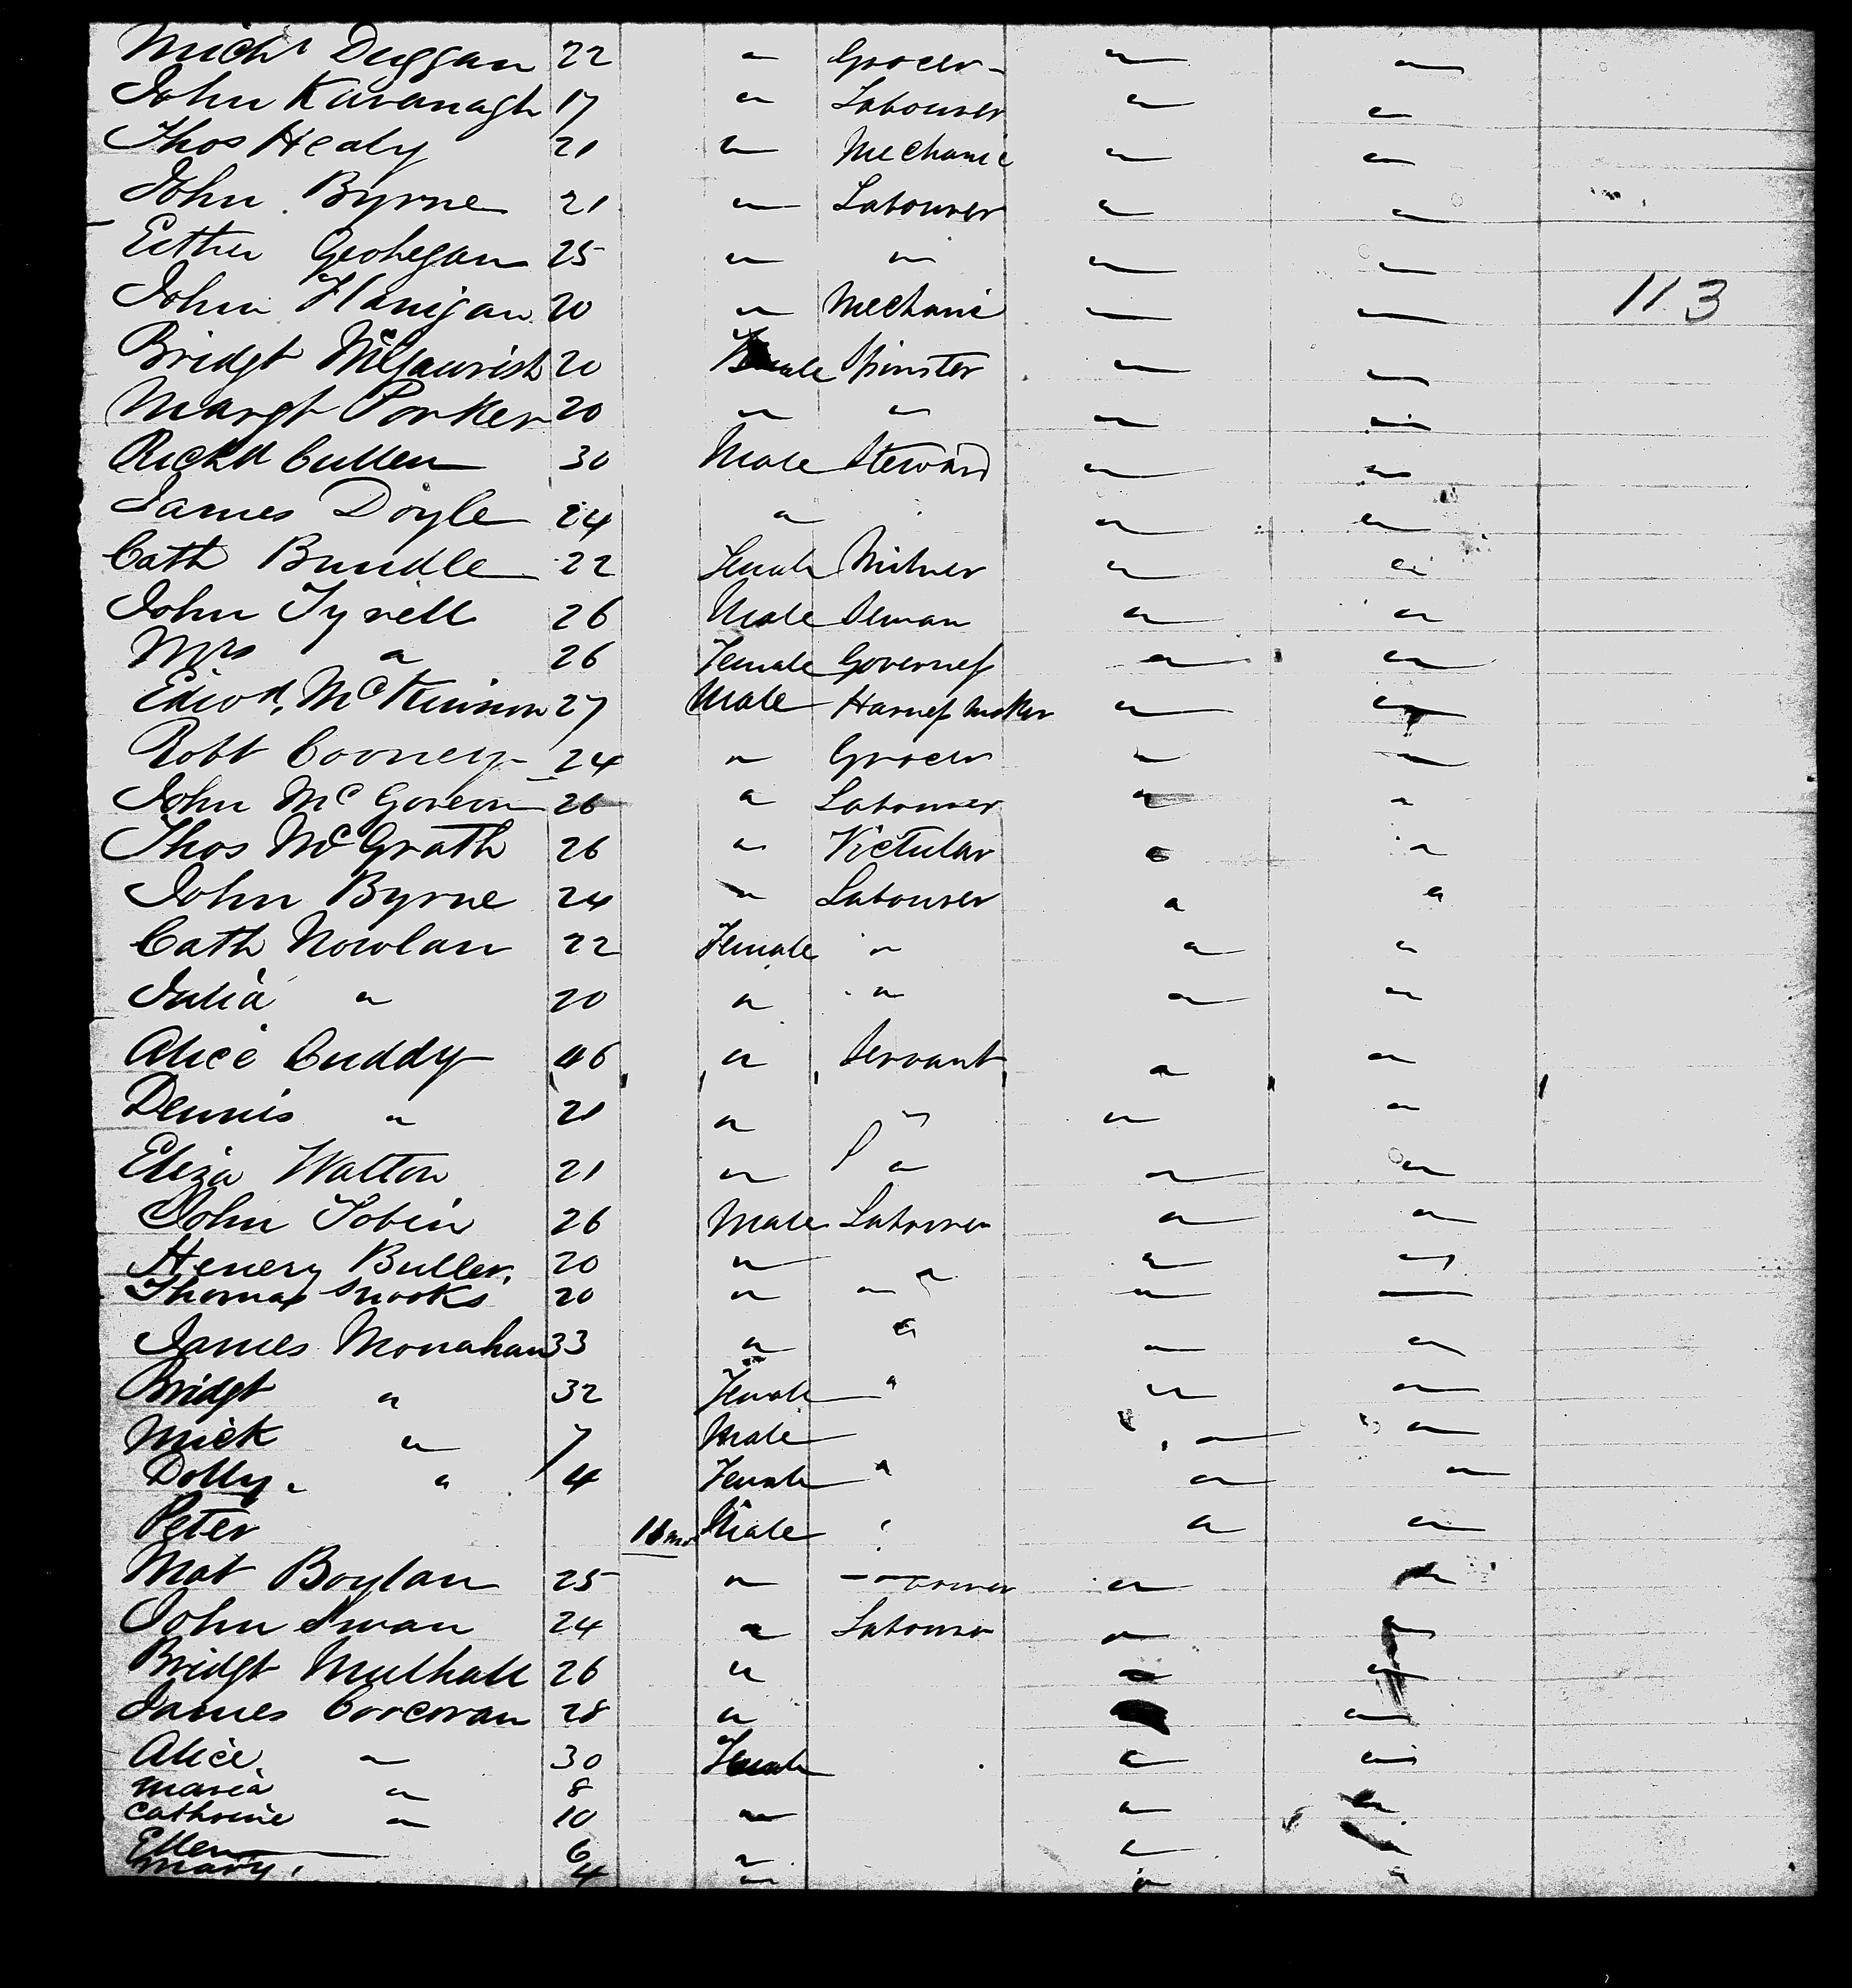 Mich^l Duggan 22 " Grocer " "
John Kavanagh 17 " Labourer " "
Thos Healy 21 " Mechanic " "
John Byrne 21 " Labourer " "
Esther Geohegan 25 " " " "
John Flanigan 20 " Mechanic " " 113
Bridgt 20 Female Spinster " "
Margt Porker 20 " " " "
Richd Cullen 30 Male Steward " "
James Doyle 24 " " "
Cath Bundle 22 Female Milner " "
John Tyrell 26 Male Seman " "
Mrs " 26 Female Governess " "
Edwd. McKinnon 27 Male Harness Maker " "
Robt Cooney 24 " Grocer " "
John McGovern 26 " Labourer " "
Thos McGrath 26 " Victular " "
John Byrne 24 " Labourer " "
Cath Nowlan 22 Female " " "
Julia " 20 " " " "
Alice Cuddy 46 " Servant " "
Dennis " 21 " " " "
Eliza Walton 21 " " " "
John Tobin 26 Male Labourer " "
Henery Buller 20 " " " "
Thomas Snooks 20 " " " "
James Monahan 33 " " " "
Bridgt " 32 Female " " "
Mick " 7 Male " "
Dolly " 4 Female " " "
Peter 18 mos Male " "
Mat Boylan 25 " " "
John Swan 24 " Labourer " "
Bridgt Mulhall 26 " " "
James Corcoran 28 " "
Alice " 30 Female " "
Maria " 8
Cathrine " 10 " " "
Ellen 6 " " "
Mary 4 " " "